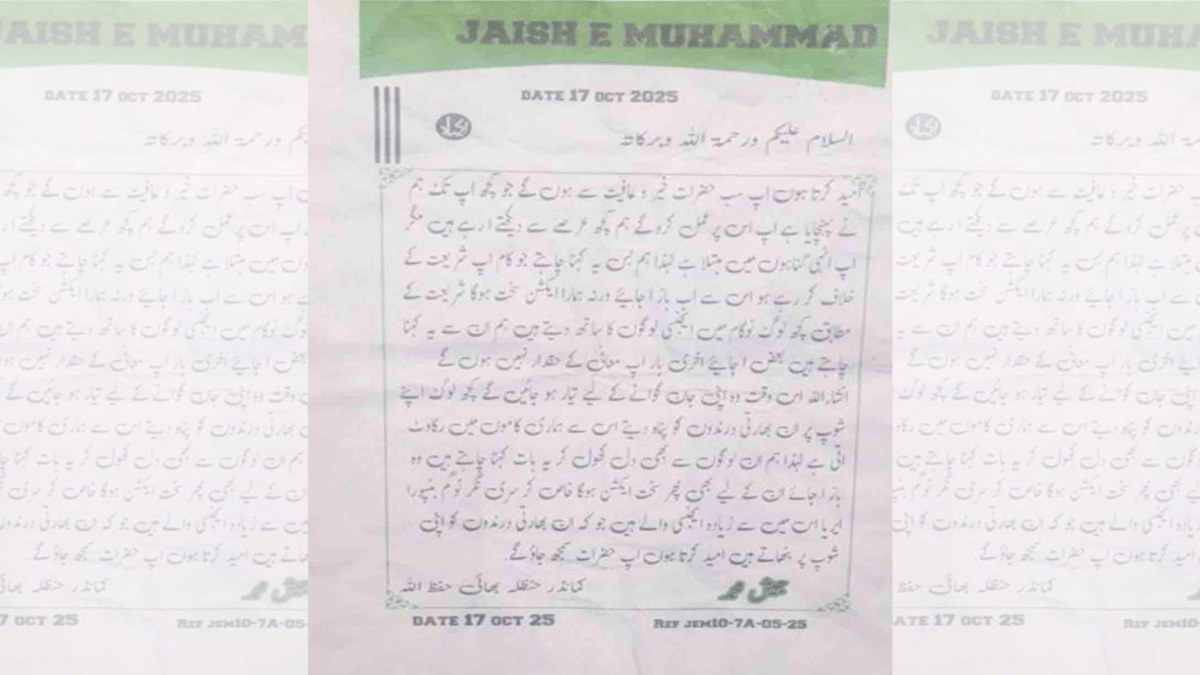 JAISH E MUHAMMAD
DATE 17 OCT 2025
السلام علیکم ورحمۃ اللہ وبرکاتہ
امید کرتا ہوں اپ سب حضرات خیر و عافیت سے ہوں گے جو کچھ اپ تک ہم
نے پہنچایا ہے اپ اس پر عمل کروگے ہم کچھ عرصے سے دیکھتے ارہے ہیں مگر
اپ انہی گناہوں میں مبتلا ہے لہذا ہم بس یہ کہنا چاہتے جو کام اپ شریعت کے
خلاف کر رہے ہو اس سے اب باز اجائیے ورنہ ہمارا ایکشن سخت ہوگا شریعت کے
مطابق کچھ لوگ نوگام میں ایجنسی لوگوں کا ساتھ دیتے ہیں ہم ان سے یہ کہنا
چاہتے ہیں اجایئے اخری بار اپ معافی کے حقدار نہیں ہوں گے
انشاءاللہ اس وقت وہ اپنی جان گوانے کے لیے تیار ہو جائیں گے کچھ لوگ اپنے
شوپ پر ان بھارتی درندوں کو پناہ دیتے اس سے ہماری کاموں میں رکاوٹ
اتی ہے لہذا ہم ان لوگوں سے بھی دل کھول کر یہ بات کہنا چاہتے ہیں وہ
باز ا جائے ان کے لیے بھی پھر سخت ایکشن ہوگا خاص کر سری نگر نوگم بنپورا
ایریا اس میں سے زیادہ ایجنسی والے ہیں جو کہ ان بھارتی درندوں کو اپنی
شوپ پر بٹھاتے ہیں امید کرتا ہوں اپ حضرات سمجھ جاؤگے۔
کمانڈر حنظلہ بھائی حفظ اللہ
جیش محمد
DATE 17 OCT 25
REF JEM10-7A-05-25